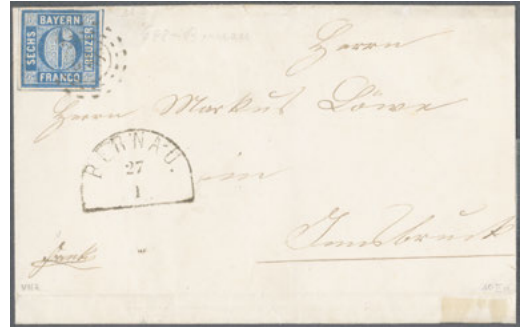 BAYERN
SECHS 6 KREUZER
FRANCO
Herrn
Herrn Markus Löwe
BERNAU.
27
1
in
Innsbruck
frei